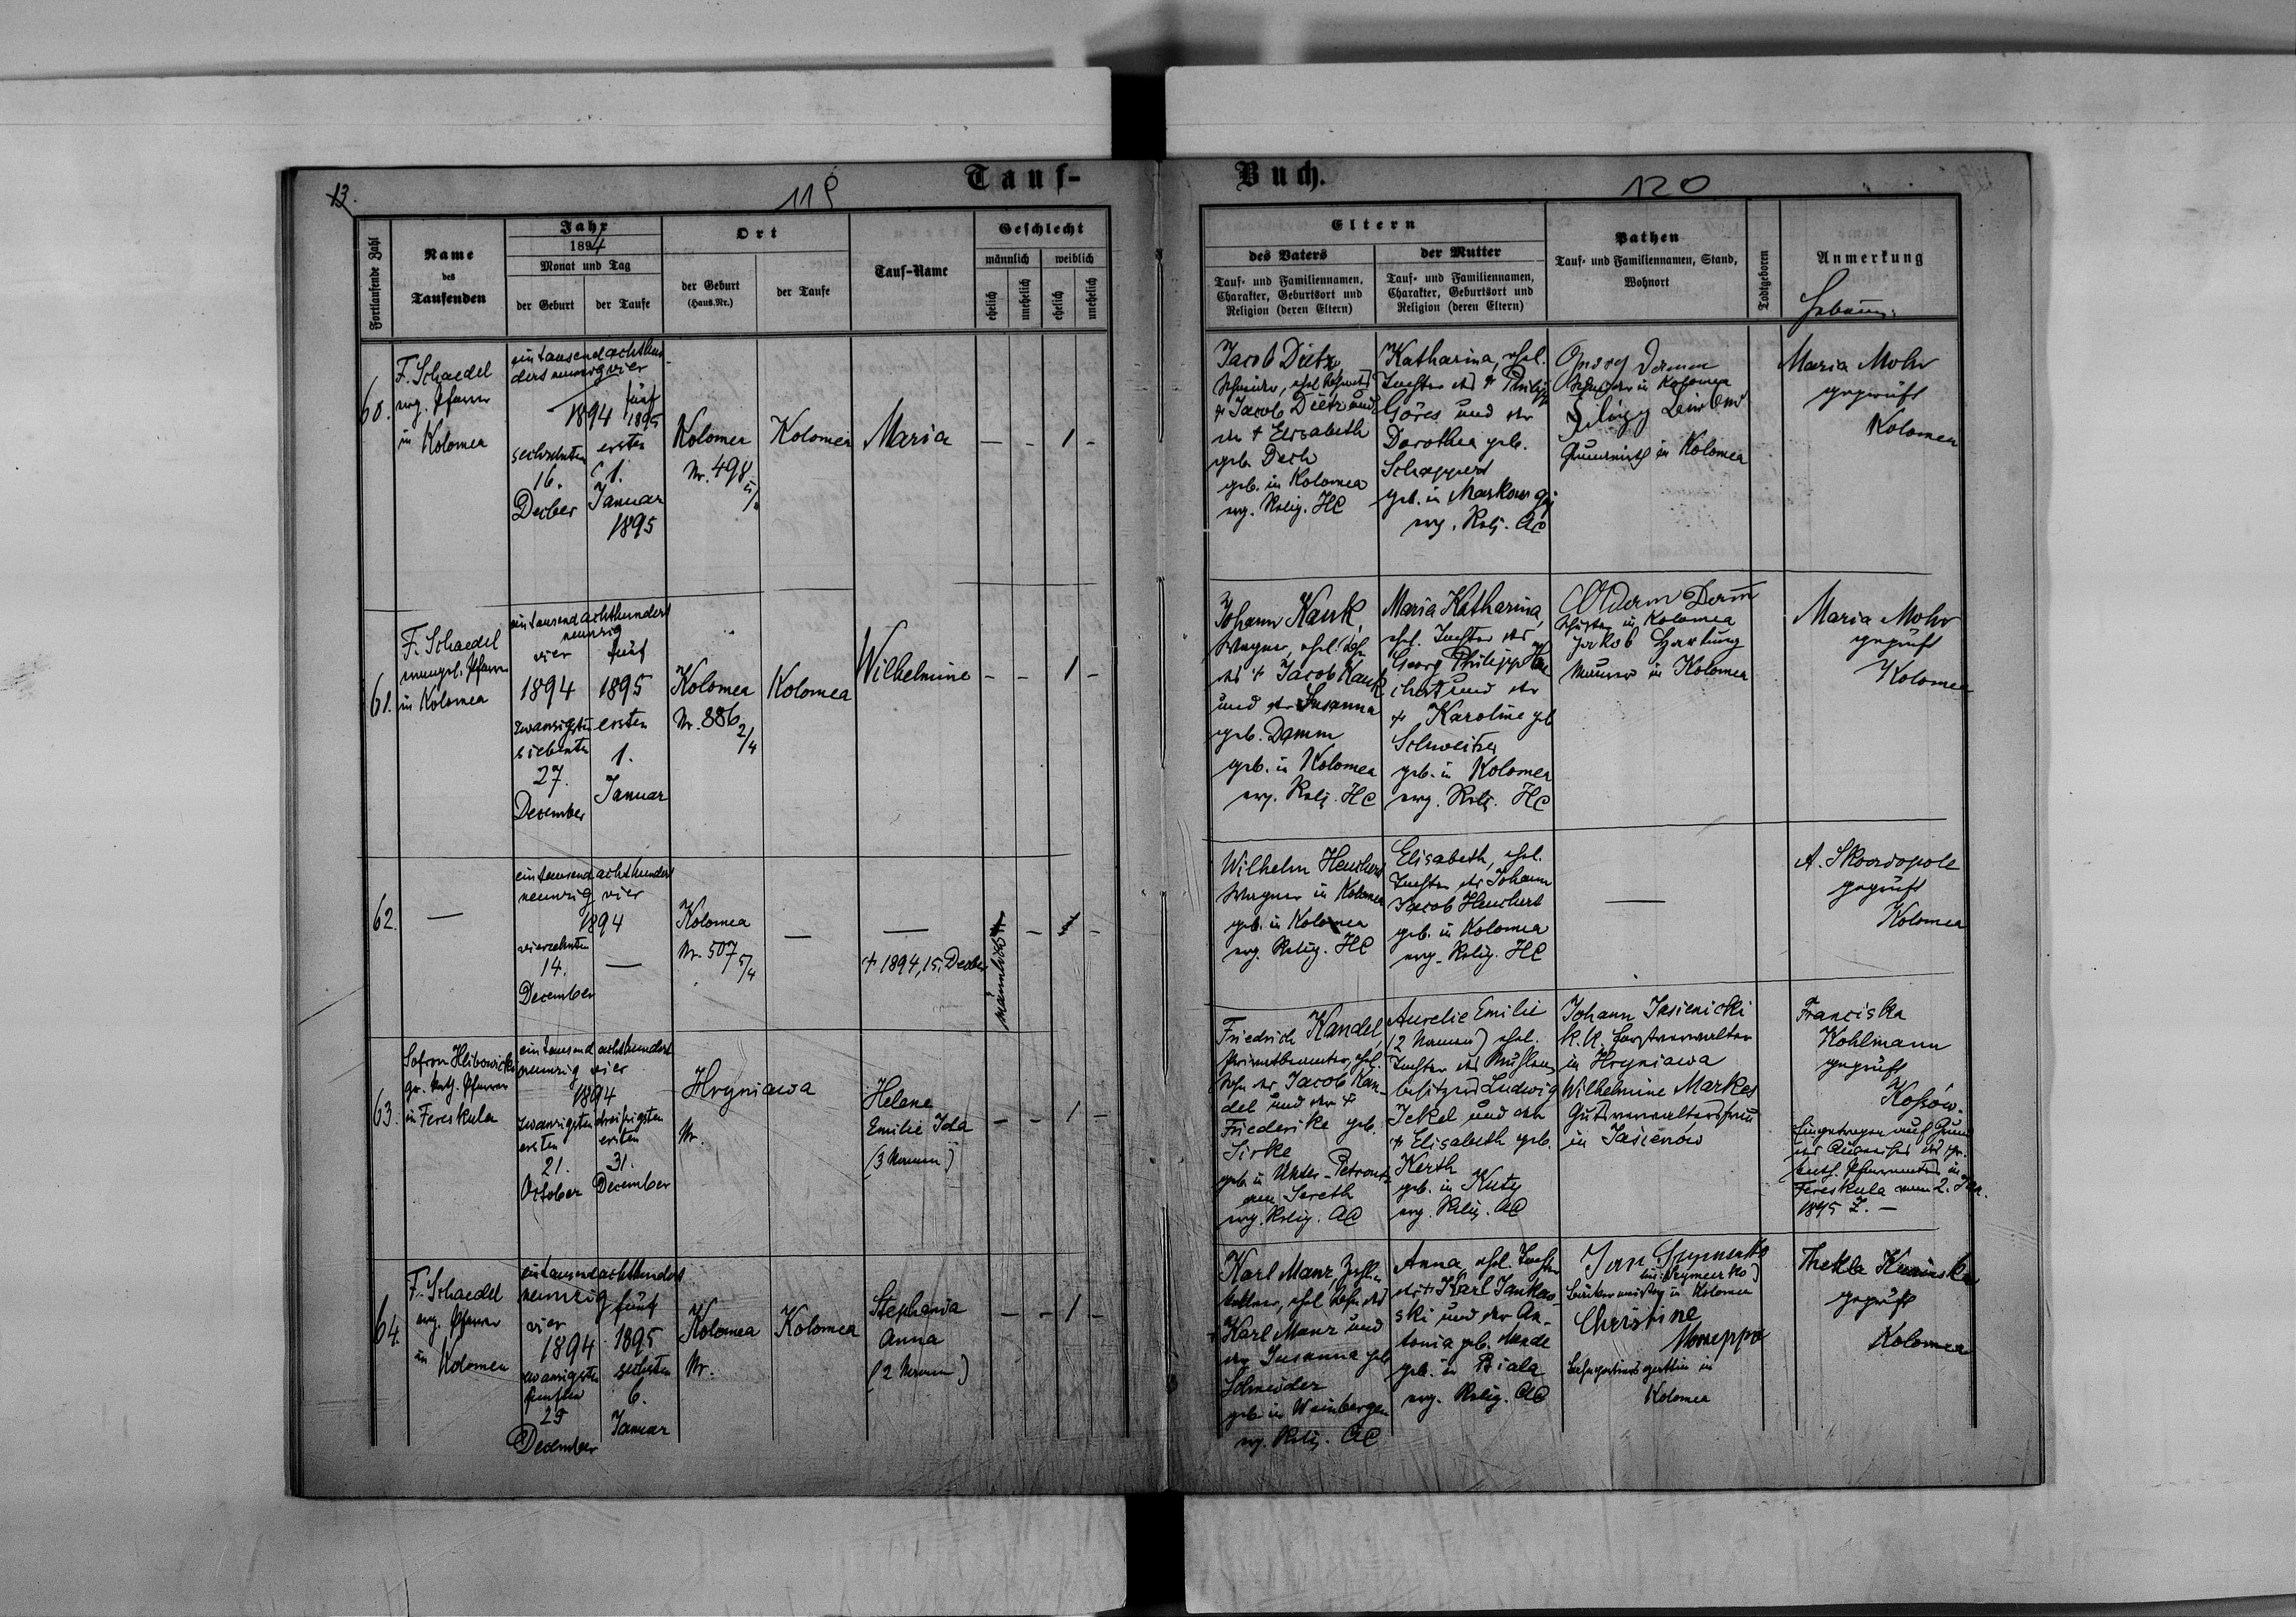 13.
119
Tauf-
Buch.
120
Fortlaufende Zahl
Name
des
Taufenden
Jahr
1894
Monat und Tag
der Geburt
der Taufe
Ort
der Geburt
(Haus-Nr.)
der Taufe
Tauf-Name
Geschlecht
männlich
weiblich
ehelich
unehelich
ehelich
unehelich
Eltern
des Vaters
Tauf- und Familiennamen,
Charakter, Geburtsort und
Religion (deren Eltern)
der Mutter
Tauf- und Familiennamen,
Charakter, Geburtsort und
Religion (deren Eltern)
Pathen
Tauf- und Familiennamen, Stand,
Wohnort
Todtgeboren
Anmerkung
60.
F. Schaedel
evg. Pfarrer
in Kolomea
eintausendachthun-
dertneunzigvier
fünf
1894 1895
sechzehnten
16.
Decber
ersten
1.
Januar
1895
Kolomea
Nr. 498
Kolomea
Maria
— - 1 -
Jacob Dietz,
ehel. Sohn des
† Jacob Dietz und
der † Elisabeth
geb. Dech
geb. in Kolomea
evg. Relig. HC
Katharina, ehel.
Tochter des † Philipp
Göres und der
Dorothea geb.
Schappert
geb. in Markow
evg. Relig. AC
Georg Damm
in Kolomea
in Kolomea
Maria Mohr
geprüft
Kolomea
61.
F. Schaedel
evangel. Pfarrer
in Kolomea
eintausendachthundert
neunzig
vier fünf
1894 1895
zwanzigsten
siebenten
27.
December
ersten
1.
Januar
Kolomea
Nr. 886 2/4
Kolomea
Wilhelmine
- - 1 -
Johann Kauk,
Wagner, ehel. Sohn
des † Jacob Kauk
und der Susanna
geb. Damm
geb. in Kolomea
evg. Relig. HC
Maria Katharina,
ehel. Tochter des
Georg Philipp Heu
chert und der
† Karoline geb
Schweitzer
geb. in Kolomea
evg. Relig. HC
Adam Damm
in Kolomea
Jakob Hartung
Maurer in Kolomea
Maria Mohr
geprüft
Kolomea
62.
—
eintausendachthundert
neunzig vier
1894
vierzehnten
14.
December
—
Kolomea
Nr. 507 5/4
—
—
† 1894, 15. Decber
männlich
- -
Wilhelm Heuchert
Wagner in Kolomea
geb. in Kolomea
evg. Relig. HC
Elisabeth, ehel.
Tochter des Johann
Jacob Heuchert
geb. in Kolomea
evg. Relig. HC
—
A. Skoordopole
geprüft
Kolomea
63.
Sofron Hlibowicki
gr. kath. Pfarrer
in Fereskula
eintausend achthundert
neunzig vier
1894
zwanzigsten
ersten
21.
October
dreißigsten
ersten
31.
December
Hryniawa
Nr.
Helene
Emilie Ida
(3 Namen)
- - 1 -
Friedrich Kandel,
Privatbeamter, ehel.
Sohn des Jacob Kan-
del und der †
Friederike geb.
Sirke
geb. in Unter-Petroutz
am Sereth
evg. Relig. AC
Aurelie Emilie
(2 Namen) ehel.
Tochter des Mühlen
besitzers Ludwig
Jekel und der
† Elisabeth geb.
Kerth
geb. in Kuty
evg. Relig. AC
Johann Jasienicki
k. k. Forstverwalter
in Hryniawa
Wilhelmine Markes
Gutsverwaltersfrau
in Jasienów
Franciska
Kohlmann
geprüft
Kossów.
Eingetragen auf Grund
des Ausweises des gr.
kath. Pfarramtes in
Fereskula vom 2. Jan.
1895 Z. —
64.
F. Schaedel
evg. Pfarrer
in Kolomea
eintausendachthundert
neunzig
vier fünf
1894 1895
zwanzigsten
fünften
25
December
sechsten
6.
Januar
Kolomea
Nr.
Kolomea
Stephania
Anna
(2 Namen)
- - 1 -
Karl Manz,
kellner, ehel. Sohn des
† Karl Manz und
der Susanna geb.
Schneider
geb. in Weinbergen
evg. Relig. AC
Anna, ehel. Tochter
des † Karl Jankow-
ski und der An-
tonia geb.
geb. in Biala
evg. Relig. AC
Jan
in Kolomea
Christine
in
Kolomea
Thekla
geprüft
Kolomea